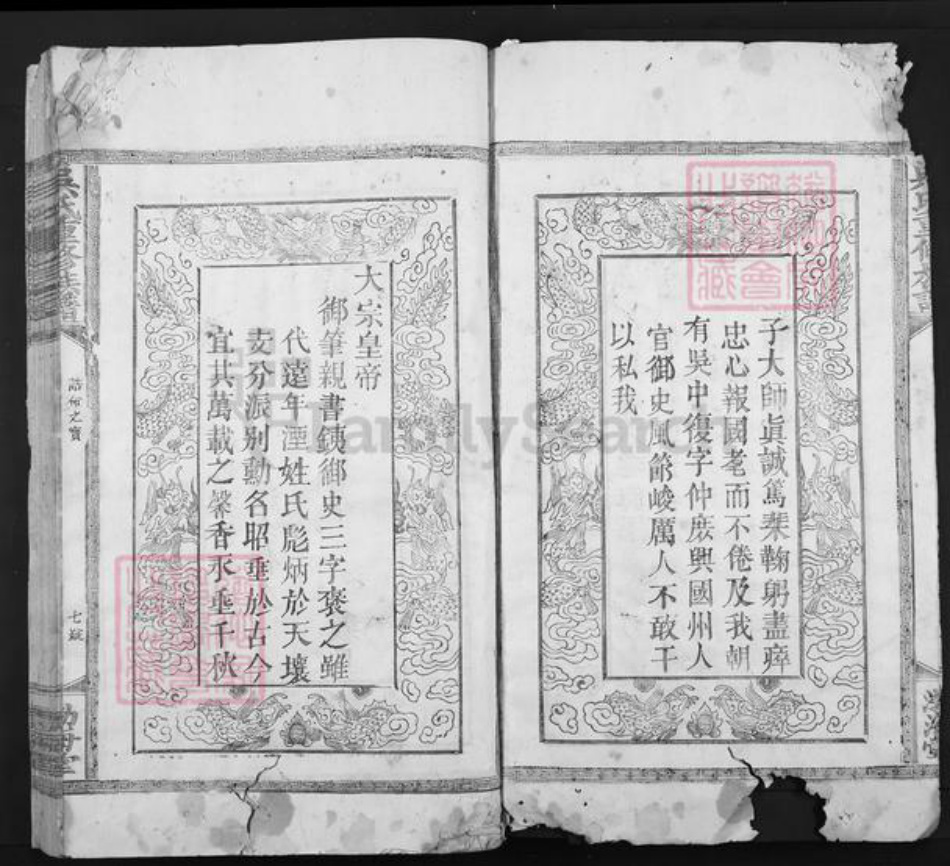 子大師眞誠篤棐鞠躬盡瘁
忠心報國耄而不倦及我朝
有吳中復字仲庶興國州人
官御史風節峻厲人不敢干
以私我
大宗皇帝
御筆親書鐵御史三字褒之雖
代遠年湮姓氏彪炳於天壤
支分派别勳名昭垂於古今
宜其萬載之馨香永垂千秋
誥命之寶
七
FamilySearch